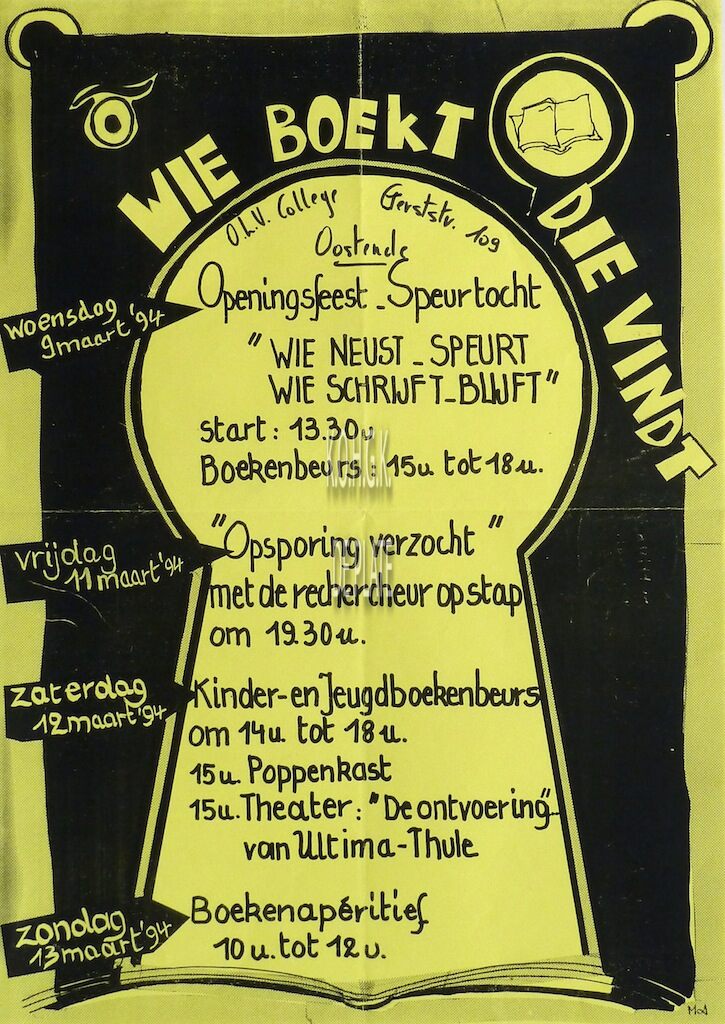 WIE BOEKT
DIE VINDT
O.L.V. College Gerststr. 109
Oostende
woensdag
9 maart '94
Openingsfeest - Speurtocht
"WIE NEUST - SPEURT
WIE SCHRIJFT - BLIJFT"
start: 13.30u
Boekenbeurs: 15u tot 18u.
vrijdag
11 maart '94
"Opsporing verzocht"
met de rechercheur op stap
om 19.30u.
zaterdag
12 maart '94
Kinder- en Jeugdboekenbeurs
om 14u tot 18u.
15u. Poppenkast
15u. Theater: "De ontvoering"
van Ultima-Thule
zondag
13 maart '94
Boekenapéritief
10u. tot 12u.
KOHGK
DEPLATE